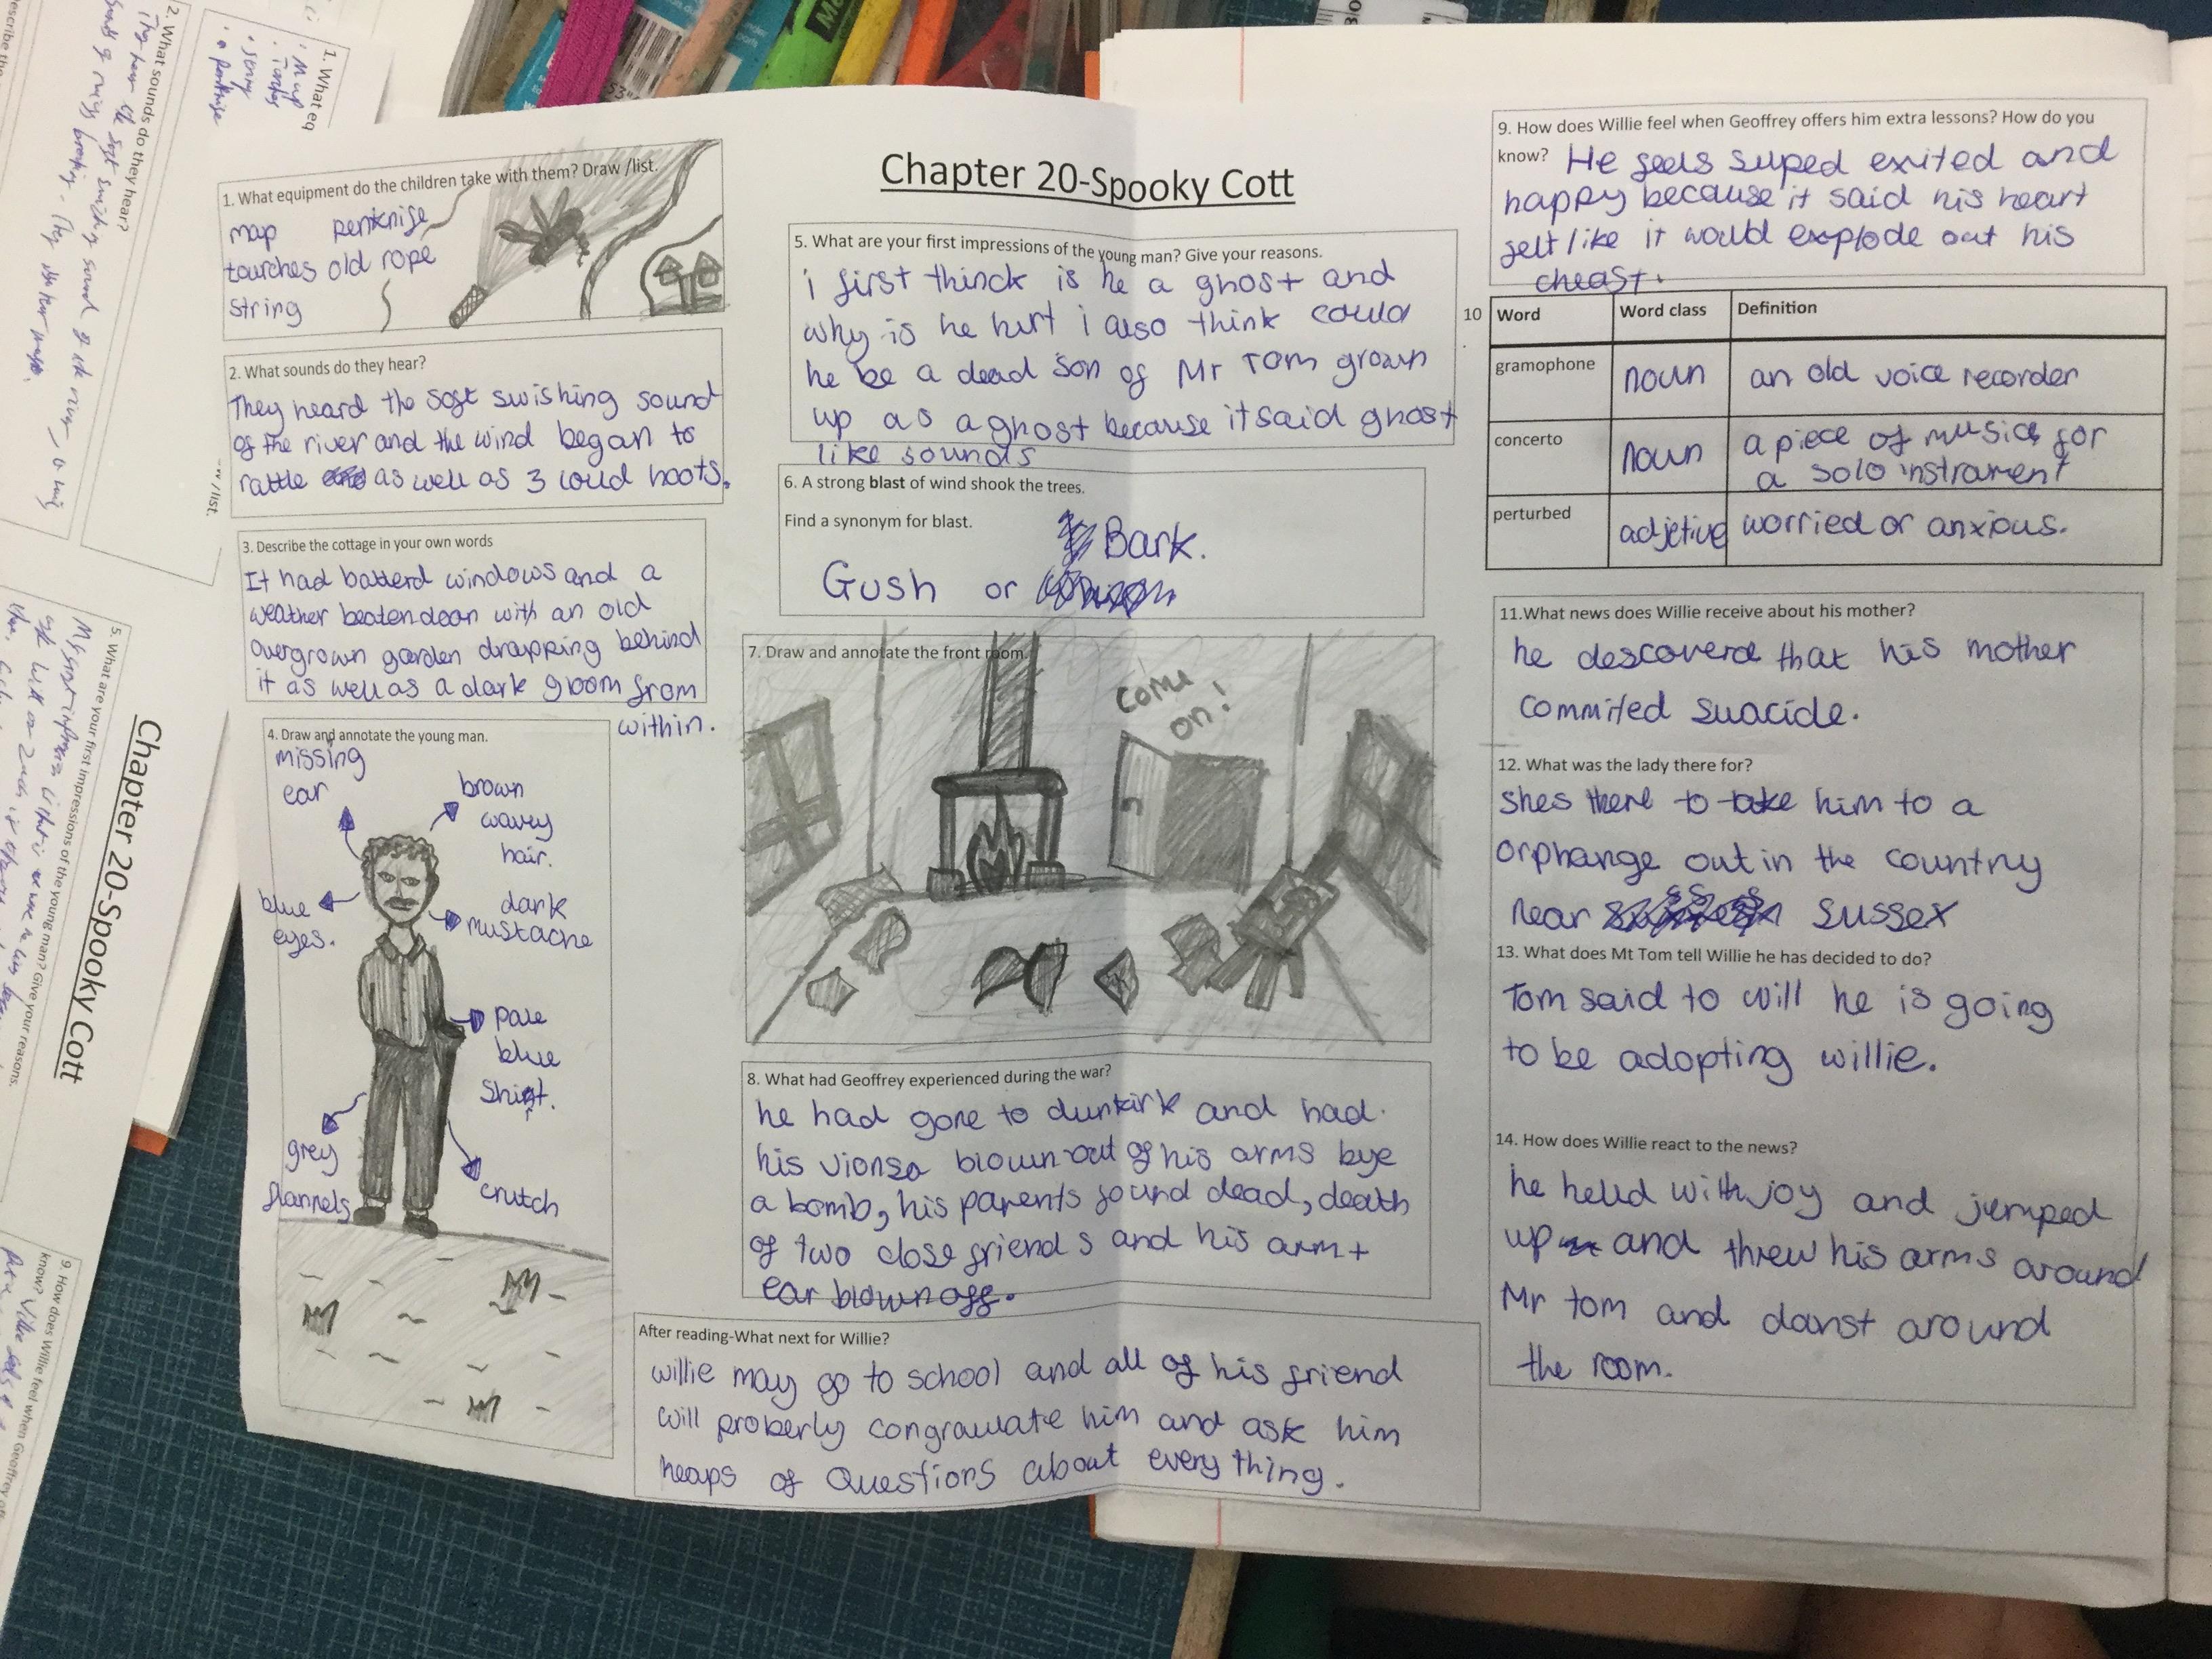 Chapter 20-Spooky Cott
1. What equipment do the children take with them? Draw /list.
map penknife
tourches old rope
string
2. What sounds do they hear?
They heard the soft swishing sound
of the river and the wind began to
rattle as well as 3 loud hoots.
3. Describe the cottage in your own words
It had batterd windows and a
weather beaten door with an old
overgrown garden drapping behind
it as well as a dark gloom from
within.
4. Draw and annotate the young man.
missing
ear
brown
wavey
hair.
blue
eyes.
dark
mustache
pale
blue
Shirt.
grey
flannels
crutch
5. What are your first impressions of the young man? Give your reasons.
i first thinck is he a ghost and
why is he hurt i also think could
he be a dead son of Mr Tom grown
up as a ghost because it said ghost
like sounds
6. A strong blast of wind shook the trees.
Find a synonym for blast.
Bark.
Gush or
7. Draw and annotate the front room.
come
on!
8. What had Geoffrey experienced during the war?
he had gone to dunkirk and had
his blown out of his arms bye
a bomb, his parents found dead, death
of two close friends and his arm +
ear blown off.
After reading-What next for Willie?
willie may go to school and all of his friend
will properly congrawlate him and ask him
heaps of Questions about every thing.
9. How does Willie feel when Geoffrey offers him extra lessons? How do you
know? He feels suped exited and
happy because it said his heart
felt like it would explode out his
cheast.
10 Word Word class Definition
gramophone noun an old voice recorder
concerto noun a piece of music for
a solo instrament
perturbed adjetive worried or anxious.
11.What news does Willie receive about his mother?
he descoverd that his mother
commited suacide.
12. What was the lady there for?
shes there to take him to a
orphange out in the country
near Sussex
13. What does Mt Tom tell Willie he has decided to do?
Tom said to will he is going
to be adopting willie.
14. How does Willie react to the news?
he helld with joy and jumped
up and threw his arms around
Mr tom and danst around
the room.
1. What eq
Map
2. What sounds do they hear?
/list.
Chapter 20-Spooky Cott
5. What are your first impressions of the young man? Give your reasons.
9. How does Willie feel when Geoffrey
know?